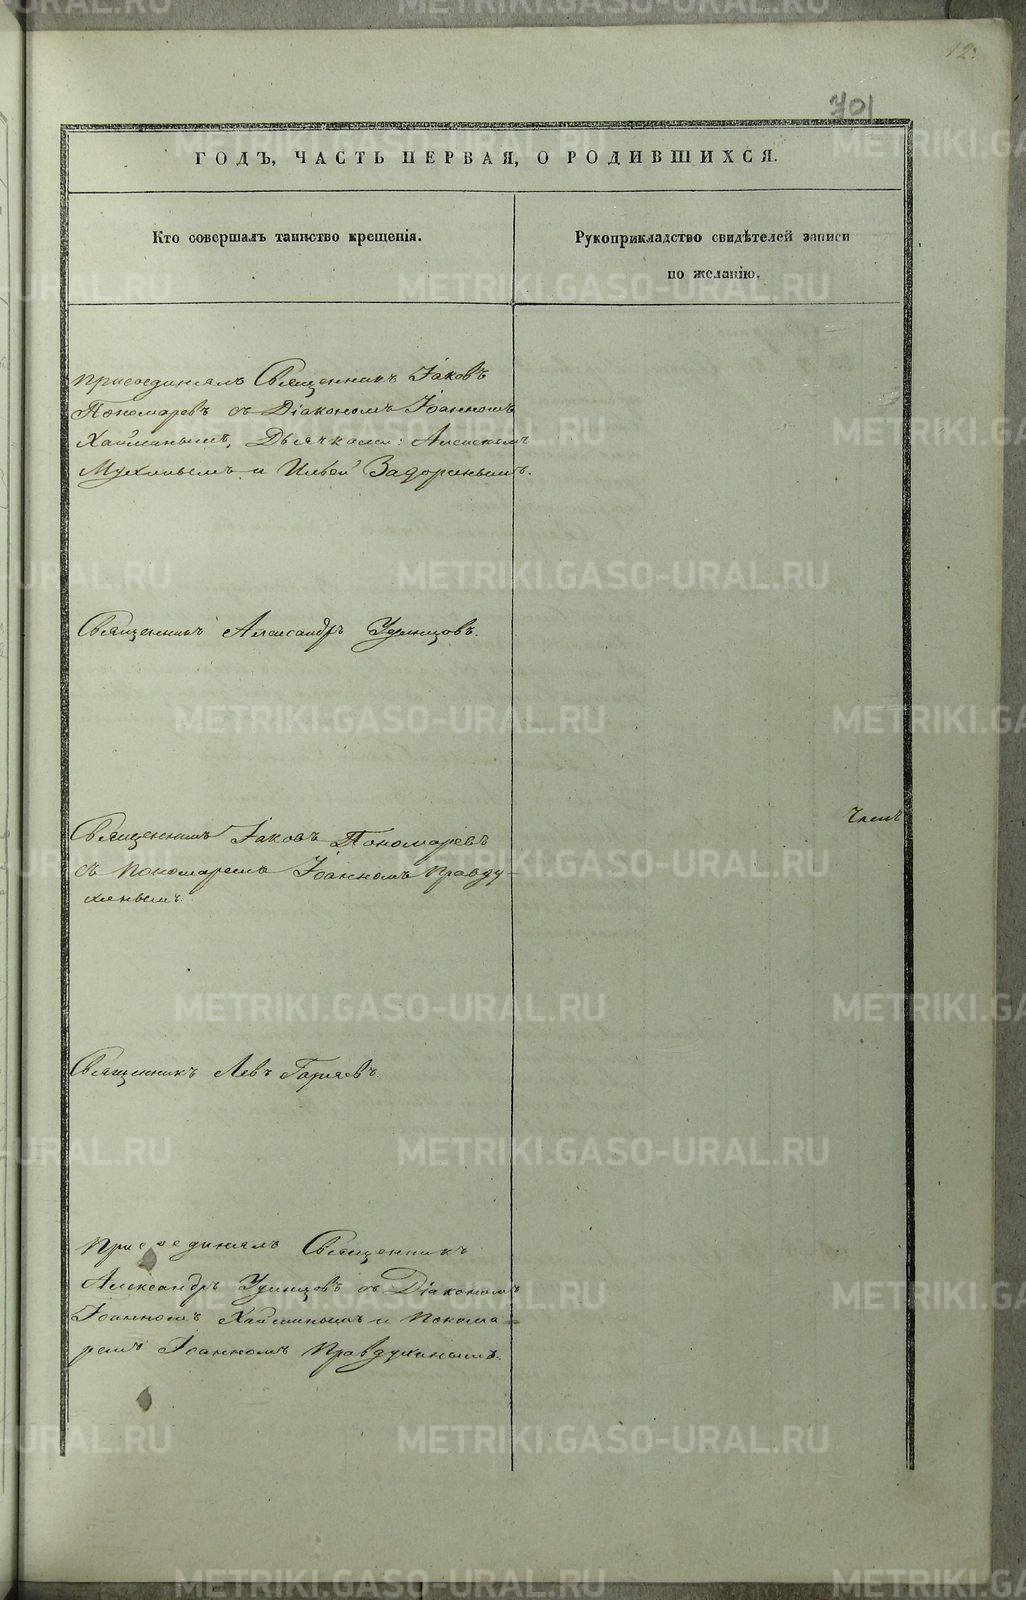 12.
701
ГОДЪ, ЧАСТЬ ПЕРВАЯ, О РОДИВШИХСЯ.
Кто совершалъ таинство крещенія.
Рукоприкладство свидѣтелей записи
по желанію.
присоединялъ Священникъ Іаковъ
Пономаревъ съ Діакономъ Іоанномъ
Хайминымъ, Дьячками: Алексеемъ
и Ильей Задоринымъ.
Священникъ Александръ Удинцовъ.
Священникъ Іаковъ Пономаревъ
съ пономаремъ Іоанномъ Правду-
хинымъ.
Священникъ Левъ Гаряевъ.
присоединялъ Священникъ
Александръ Удинцовъ съ Діакономъ
Іоанномъ Хайминымъ и Понома-
ремъ Іоанномъ Правдухинымъ.
METRIKI.GASO-URAL.RU